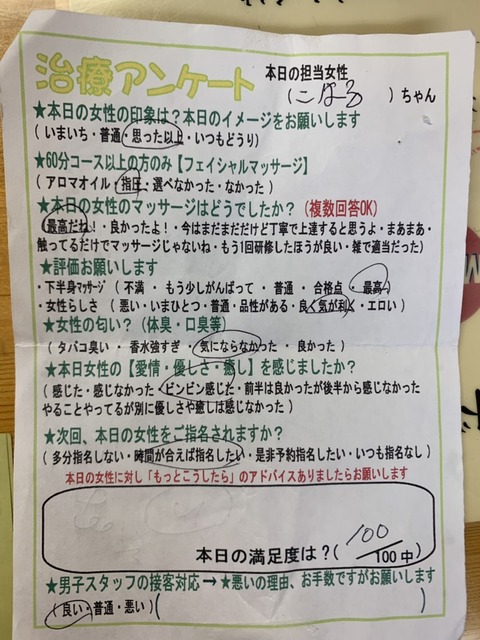 治療アンケート
本日の担当女性
(こはる)ちゃん
★本日の女性の印象は？本日のイメージをお願いします
(いまいち・普通・思った以上・いつもどうり)
★60分コース以上の方のみ【フェイシャルマッサージ】
(アロマオイル・指圧・選べなかった・なかった)
★本日の女性のマッサージはどうでしたか？(複数回答OK)
(最高だね!・良かったよ!・今はまだまだだけど丁寧で上達すると思うよ・まあまあ・
触ってるだけでマッサージじゃないね・もう1回研修したほうが良い・雑で適当だった)
★評価お願いします
・下半身マッサージ (不満・もう少しがんばって・普通・合格点・最高!)
・女性らしさ (悪い・いまひとつ・普通・品性がある・良く気が利く・エロい)
★女性の匂い？(体臭・口臭等)
(タバコ臭い・香水強すぎ・気にならなかった・良かった)
★本日女性の【愛情・優しさ・癒し】を感じましたか？
(感じた・感じなかった・ビンビン感じた・前半は良かったが後半から感じなかった
やることやってるが別に優しさや癒しは感じなかった)
★次回、本日の女性をご指名されますか？
(多分指名しない・時間が合えば指名したい・是非予約指名したい・いつも指名なし)
本日の女性に対し「もっとこうしたら」のアドバイスありましたらお願いします
本日の満足度は？(100/100中)
★男子スタッフの接客対応→★悪いの理由、お手数ですがお願いします
(良い・普通・悪い)( )